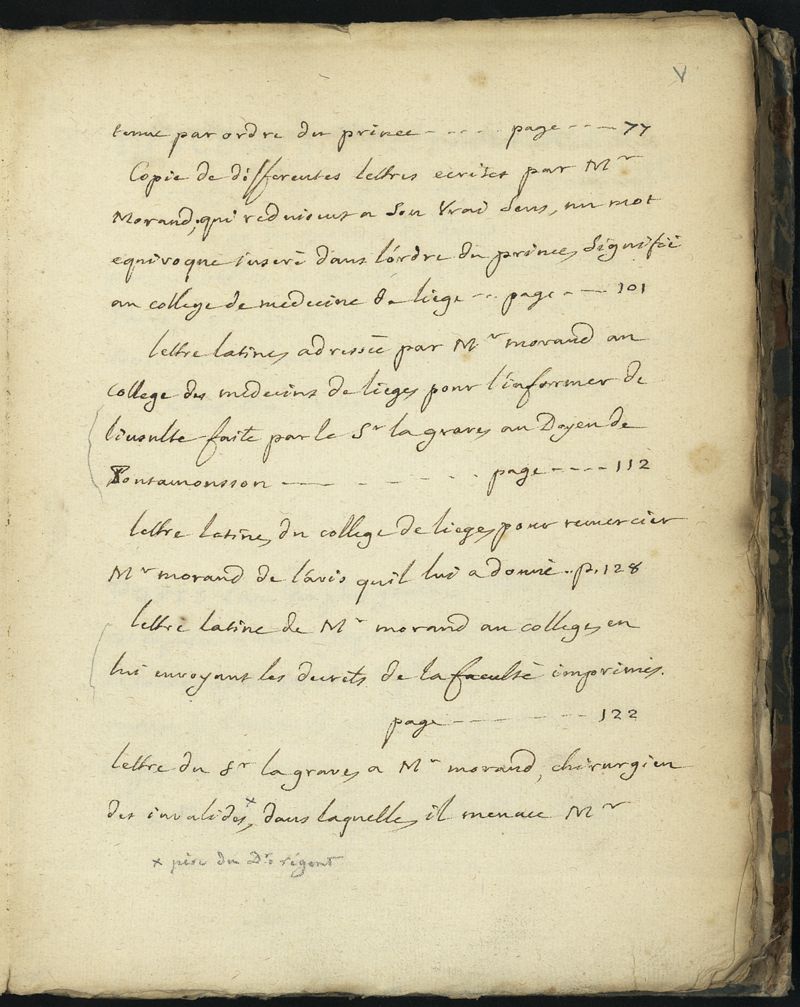 V
tenue par ordre du prince - - - - page - - - 77
Copie de differentes lettres ecrites par Mr
Morand, qui reduisent a son vrai sens, un mot
equivoque inseré dans l'ordre du prince, signifié
au college de medecine de liege - - page - - 101
lettre latine, adressée par Mr morand au
college des medecins de liege, pour l'informer de
l'insulte faite par le Sr la grave, au Doyen de
Pontamousson - - - - - - page - - - - 112
lettre latine, du college de liege, pour remercier
Mr morand de l'avis qu'il lui a donné . . p. 128
lettre latine de Mr morand au college, en
lui envoyant les decrets de la faculté imprimés.
page - - - - - - - 122
lettre du Sr la grave, a Mr morand, chirurgien
des invalides x, dans laquelle, il menace Mr
x pére du Dr. régent